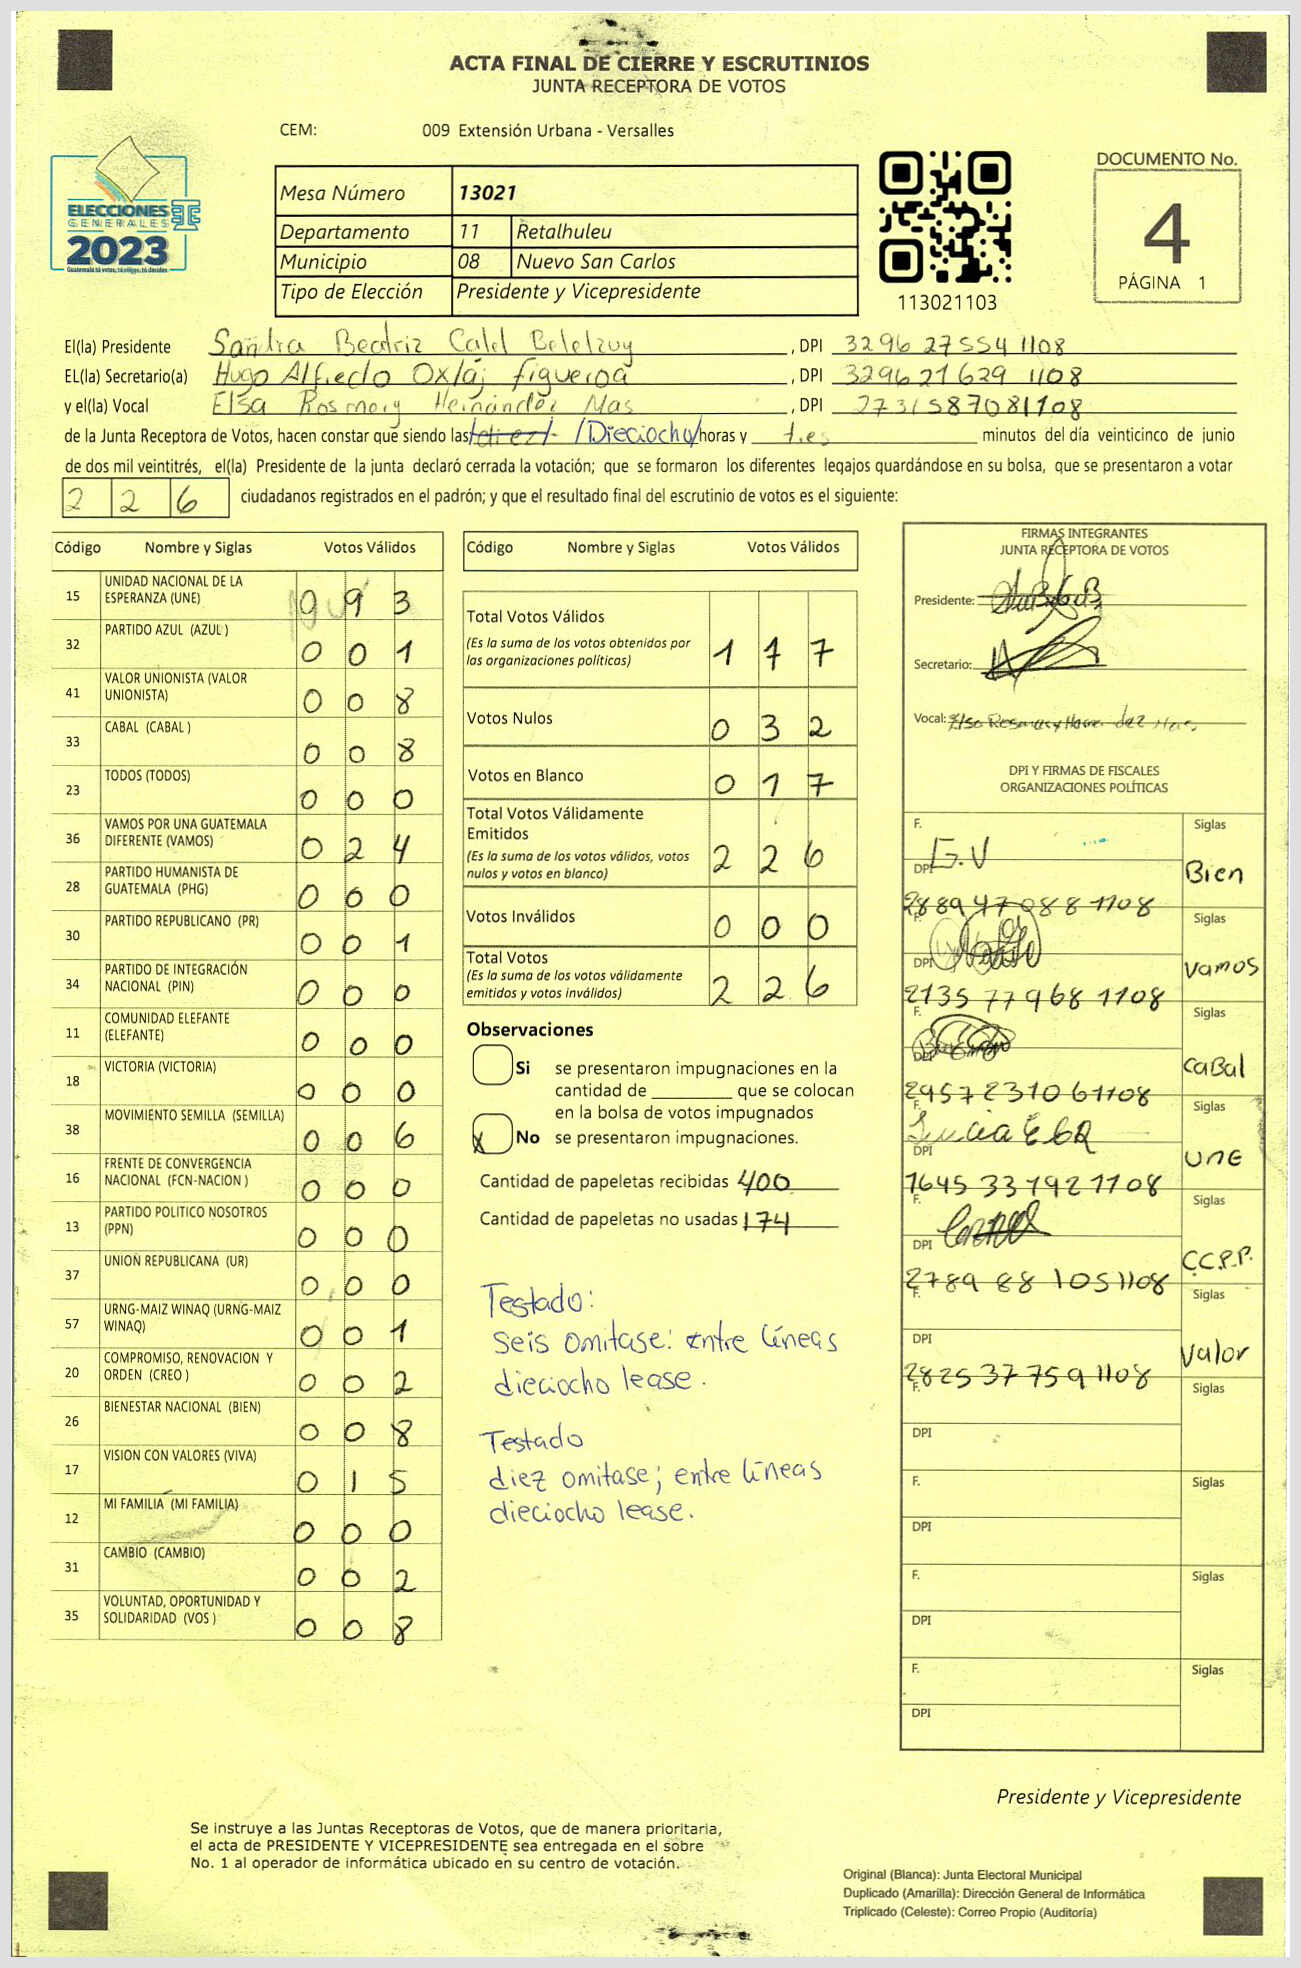 ACTA FINAL DE CIERRE Y ESCRUTINIOS
JUNTA RECEPTORA DE VOTOS
CEM: 009 Extensión Urbana - Versalles
ELECCIONES
GENERALES
2023
Mesa Número 13021
Departamento 11 Retalhuleu
Municipio 08 Nuevo San Carlos
Tipo de Elección Presidente y Vicepresidente
113021103
DOCUMENTO No.
4
PÁGINA 1
El(la) Presidente Sandra Beatriz , DPI 3296 27554 1108
EL(la) Secretario(a) Hugo Alfredo Oxlaj figueroa , DPI 3296 21629 1108
y el(la) Vocal Elsa Rosmery Hernández Mas , DPI 2731587081108
de la Junta Receptora de Votos, hacen constar que siendo las diez /Dieciocho/ horas y tres minutos del día veinticinco de junio
de dos mil veintitrés, el(la) Presidente de la junta declaró cerrada la votación; que se formaron los diferentes legajos quardándose en su bolsa, que se presentaron a votar
2 2 6 ciudadanos registrados en el padrón; y que el resultado final del escrutinio de votos es el siguiente:
Código Nombre y Siglas Votos Válidos
15 UNIDAD NACIONAL DE LA
ESPERANZA (UNE) 0 9 3
32 PARTIDO AZUL (AZUL ) 0 0 1
41 VALOR UNIONISTA (VALOR
UNIONISTA) 0 0 8
33 CABAL (CABAL ) 0 0 8
23 TODOS (TODOS) 0 0 0
36 VAMOS POR UNA GUATEMALA
DIFERENTE (VAMOS) 0 2 4
28 PARTIDO HUMANISTA DE
GUATEMALA (PHG) 0 0 0
30 PARTIDO REPUBLICANO (PR) 0 0 1
34 PARTIDO DE INTEGRACIÓN
NACIONAL (PIN) 0 0 0
11 COMUNIDAD ELEFANTE
(ELEFANTE) 0 0 0
18 VICTORIA (VICTORIA) 0 0 0
38 MOVIMIENTO SEMILLA (SEMILLA) 0 0 6
16 FRENTE DE CONVERGENCIA
NACIONAL (FCN-NACION ) 0 0 0
13 PARTIDO POLITICO NOSOTROS
(PPN) 0 0 0
37 UNION REPUBLICANA (UR) 0 0 0
57 URNG-MAIZ WINAQ (URNG-MAIZ
WINAQ) 0 0 1
20 COMPROMISO, RENOVACION Y
ORDEN (CREO ) 0 0 2
26 BIENESTAR NACIONAL (BIEN) 0 0 8
17 VISION CON VALORES (VIVA) 0 1 5
12 MI FAMILIA (MI FAMILIA) 0 0 0
31 CAMBIO (CAMBIO) 0 0 2
35 VOLUNTAD, OPORTUNIDAD Y
SOLIDARIDAD (VOS ) 0 0 8
Código Nombre y Siglas Votos Válidos
Total Votos Válidos
(Es la suma de los votos obtenidos por
las organizaciones políticas) 1 7 7
Votos Nulos 0 3 2
Votos en Blanco 0 1 7
Total Votos Válidamente
Emitidos
(Es la suma de los votos válidos, votos
nulos y votos en blanco) 2 2 6
Votos Inválidos 0 0 0
Total Votos
(Es la suma de los votos válidamente
emitidos y votos inválidos) 2 2 6
Observaciones
Si se presentaron impugnaciones en la
cantidad de ________ que se colocan
en la bolsa de votos impugnados
X No se presentaron impugnaciones.
Cantidad de papeletas recibidas 400
Cantidad de papeletas no usadas 174
Testado:
Seis omitase: entre líneas
dieciocho lease.
Testado
diez omitase; entre líneas
dieciocho lease.
FIRMAS INTEGRANTES
JUNTA RECEPTORA DE VOTOS
Presidente:
Secretario:
Vocal: Elsa Rosmery
DPI Y FIRMAS DE FISCALES
ORGANIZACIONES POLÍTICAS
F. G.V Siglas
DPI 2889 47088 1108 Bien
F. Siglas
DPI 2135 77968 1108 Vamos
F. Siglas
DPI 2957 23106 1108 CaBal
F. Siglas
DPI 1645 33192 1108 UNE
F. Siglas
DPI 2789 88 105 1108 C.C.P.P.
F. Siglas
DPI 2825 37 759 1108 Valor
F. Siglas
DPI
F. Siglas
DPI
F. Siglas
DPI
F. Siglas
DPI
Presidente y Vicepresidente
Se instruye a las Juntas Receptoras de Votos, que de manera prioritaria,
el acta de PRESIDENTE Y VICEPRESIDENTE sea entregada en el sobre
No. 1 al operador de informática ubicado en su centro de votación.
Original (Blanca): Junta Electoral Municipal
Duplicado (Amarilla): Dirección General de Informática
Triplicado (Celeste): Correo Propio (Auditoría)